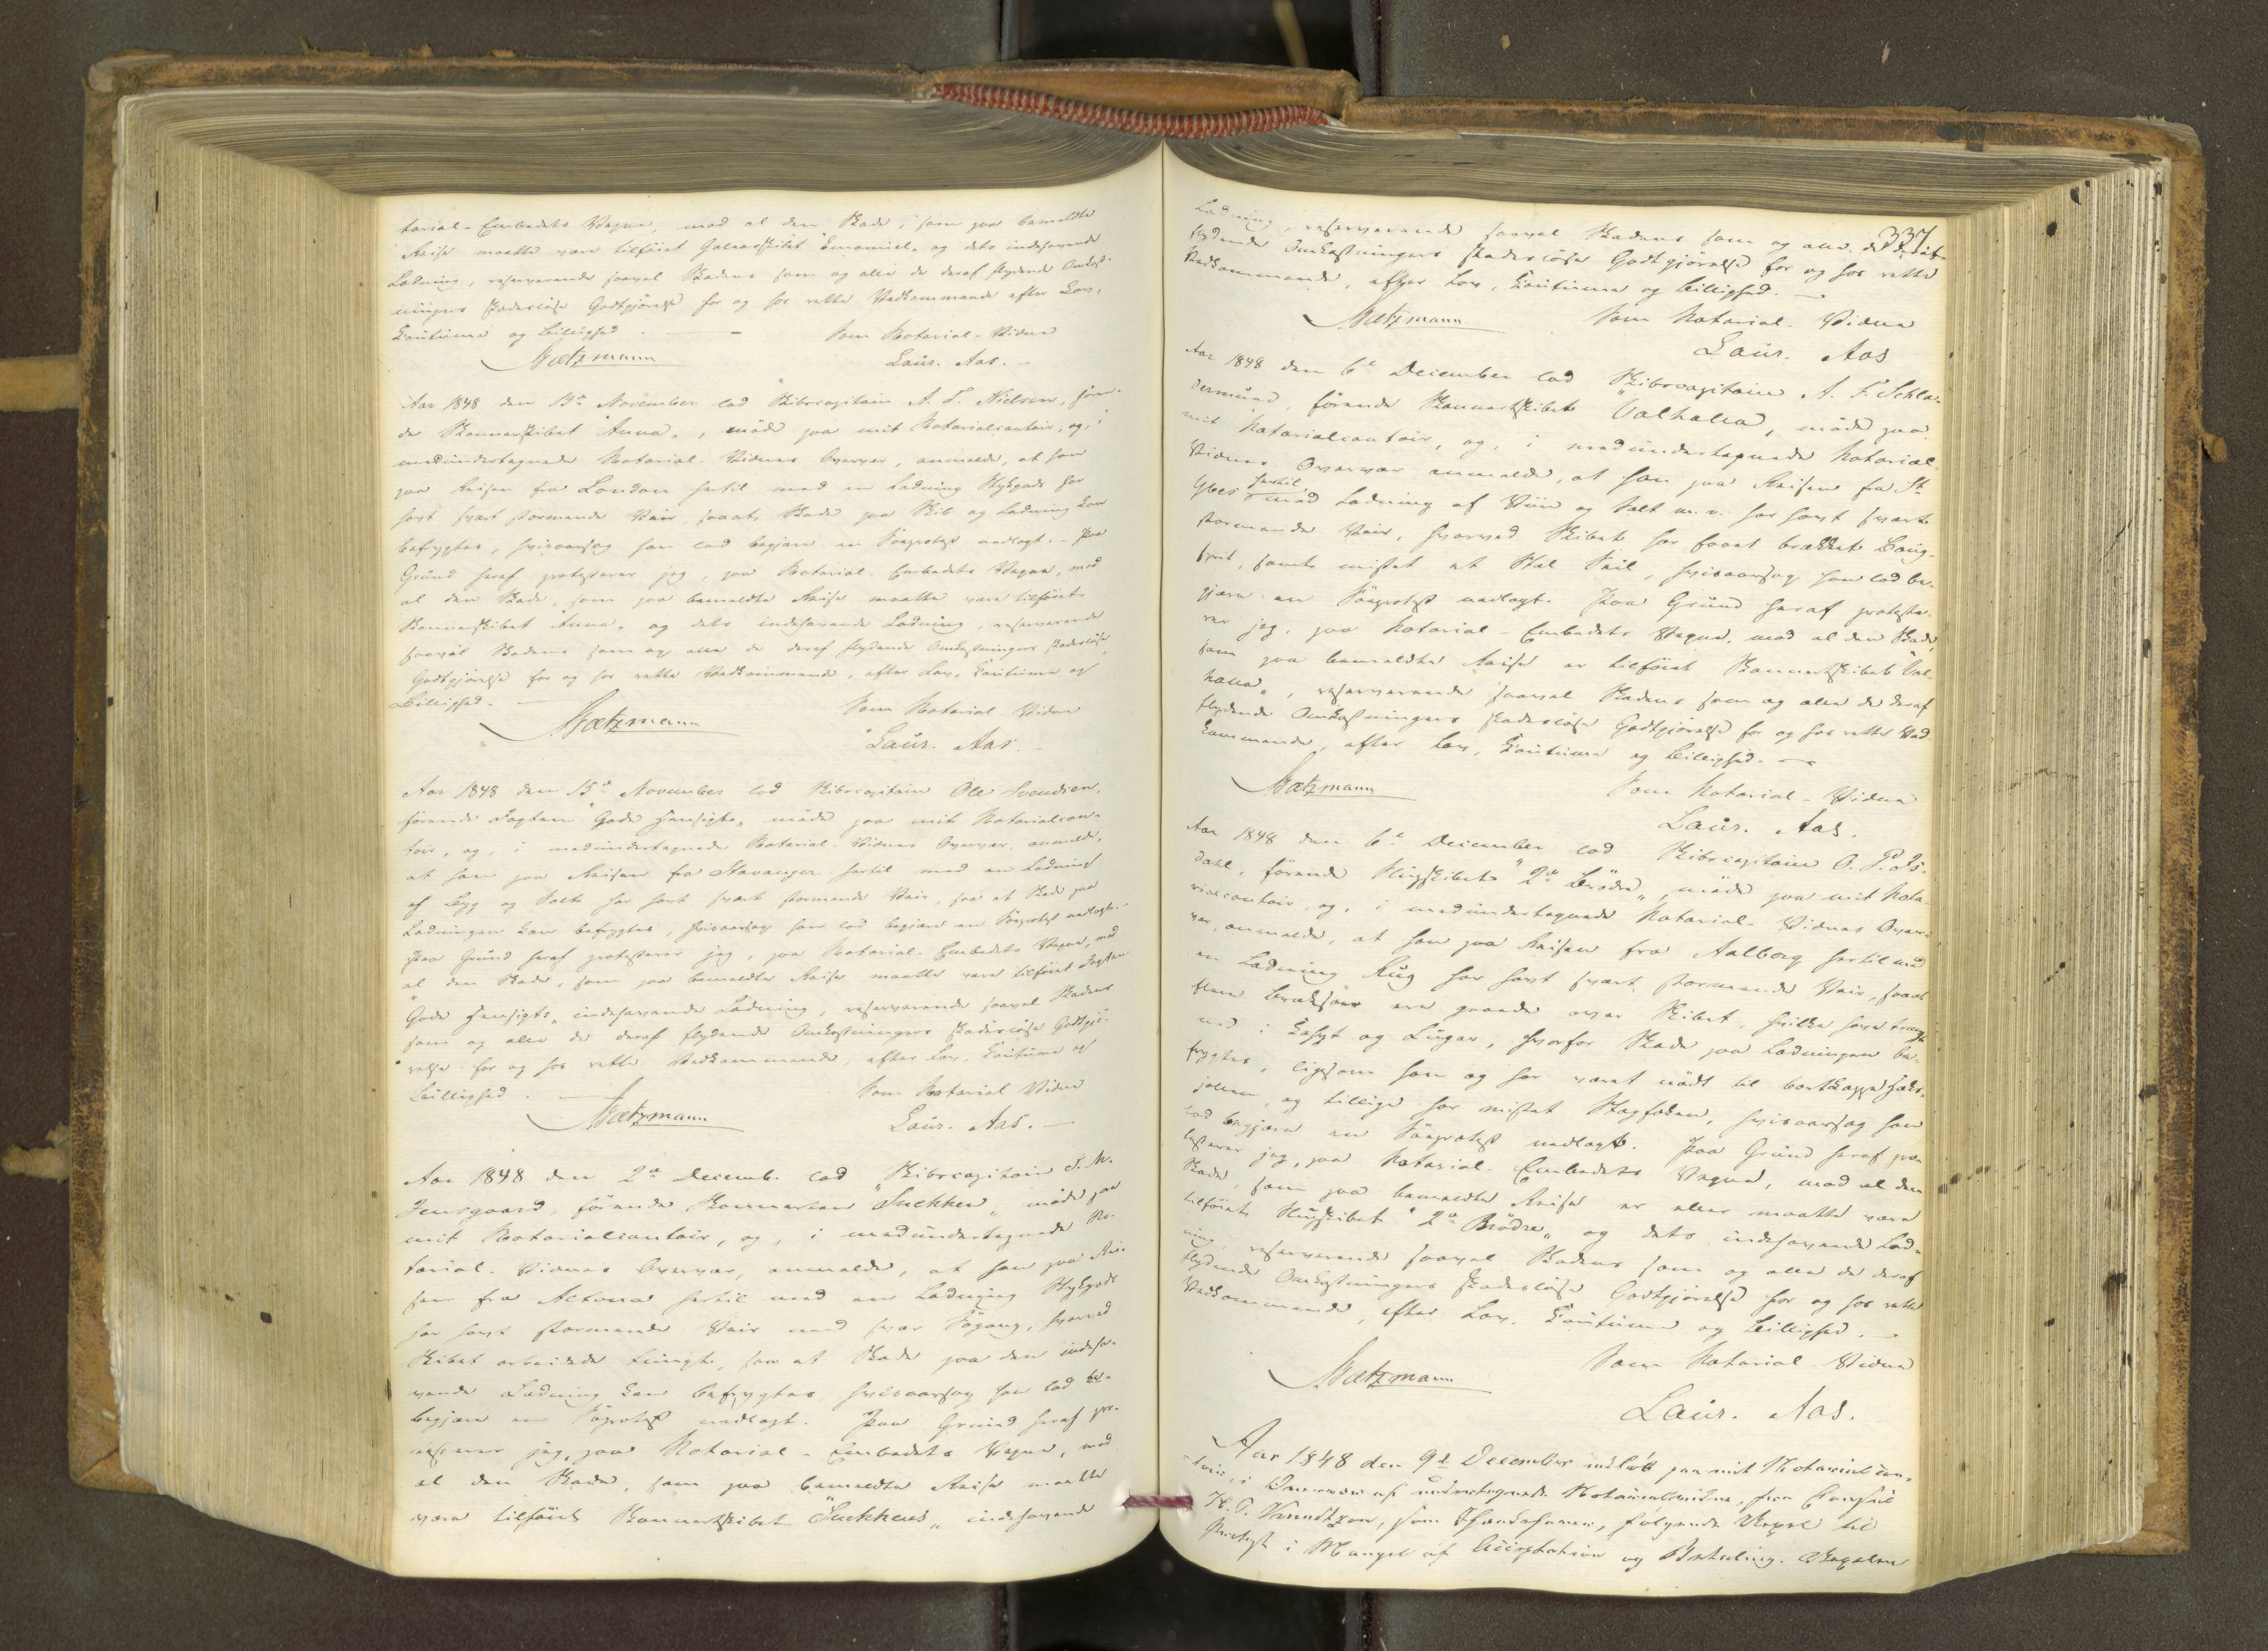 tarial-Embedets Vegne, mod al den Skade, som paa bemeldte
Reise maatte være tilföiet Galeasskibet "Emanuel" og dets indehavende
Ladning, reserverende saavel Skadens som og alle de deraf flydende Omkost-
ningers skadeslöse Godtgjörelse for og hos rette Vedkommende efter Lov,
Coutume og Billighed. – Som Notarial-Vidne
Mætzmann Laur. Aas. –
Aar 1848 den 13de November lod Skibscapitain A. T. Nielsen, fören-
de Skonnertskibet "Anna", möde paa mit Notarialcontoir, og, i
medundertegnede Notarial-Vidnes Overvær, anmelde, at han
paa Reisen fra London hertil med en Ladning Stykgods har
havt svært stormende Veir, saa at Skade paa Skib og Ladning kan
befrygtes, hvisaarsag han lod begjære en Söeprotest nedlagt. – Paa
Grund heraf protesterer jeg, paa Notarial-Embedets Vegne, mod
al den Skade, som paa bemeldte Reise maatte være tilföiet
Skonnertskibet "Anna" og dets indehavende Ladning, reserverende
saavel Skadens som og alle de deraf flydende Omkostningers skadeslöse
Godtgjörelse for og hos rette Vedkommende, efter Lov, Coutume og
Billighed. – Som Notarial Vidne
Mætzmann Laur. Aas. –
Aar 1848 den 15de November lod Skibscapitain Ole Svendsen,
förende Jagten "Gode Hensigt", möde paa mit Notarialcon-
toir, og, i medundertegnede Notarial-Vidnes Overvær, anmelde,
at han paa Reisen fra Stavanger hertil med en Ladning
af Byg og Salt har havt svært stormende Veir, saa at Skade paa
Ladningen kan befrygtes, hvisaarsag han lod begjære en Söeprotest nedlagt. –
Paa Grund heraf protesterer jeg, paa Notarial-Embedets Vegne, mod
al den Skade, som paa bemeldte Reise maatte være tilföiet Jagten
"Gode Hensigts" indehavende Ladning, reserverende saavel Skadens
som og alle de deraf flydende Omkostningers skadeslöse Godtgjö-
relse for og hos rette Vedkommende, efter Lov, Coutume og
Billighed. – Som Notarial Vidne
Mætzmann Laur. Aas. –
Aar 1848 den 2de Decemb. lod Skibscapitain
Jensgaard, förende Skonnerten möde paa
mit Notarialcontoir, og, i medundertegnede No-
tarial-Vidnes Overvær, anmelde, at han paa Rei-
sen fra Altona hertil med en Ladning Stykgods
har havt stormende Veir med svær Sögang, hvorved
Skibet arbeidede tungt, saa at Skade paa den indeha-
vende Ladning kan befrygtes, hvisaarsag han lod be-
begjære en Söprotest nedlagt. Paa Grund heraf pro-
testerer jeg, paa Notarial-Embedets Vegne, mod
al den Skade, som paa bemeldte Reise maatte
være tilföiet Skonnertskibet indehavende
337
Ladning, reserverende saavel Skadens som og alle de deraf
flydende Omkostningers skadeslöse Godtgjörelse for og hos rette
Vedkommende, efter Lov, Coutume og Billighed. –
Mætzmann Som Notarial-Vidne
Laur. Aas
Aar 1848 den 6te December lod Skibscapitain A. F. Schla-
dermund, förende Skonnertskibet "Valhalla", möde paa
mit Notarialcontoir, og, i medundertegnede Notarial-
Vidnes Overvær anmelde, at han paa Reisen fra St
Ybes hertil med Ladning af Viin og Salt m. v. har havt svært
stormende Veir, hvorved Skibet har faaet brækket Boug-
spryd, samt mistet et Stal Seil, hvisaarsag han lod be-
gjære en Söeprotest nedlagt. Paa Grund heraf proteste-
rer jeg, paa Notarial-Embedets Vegne, mod al den Skade,
som paa bemeldte Reise er tilföiet Skonnertskibet "Val-
halla", reserverende saavel Skadens som og alle de deraf
flydende Omkostningers skadeslöse Godtgjörelse for og hos rette Ved-
kommende, efter Lov, Coutume og Billighed. –
Mætzmann Som Notarial-Vidne
Laur. Aas.
Aar 1848 den 6te December lod Skibscapitain O. P. Is-
dahl, förende Slupskibet "2de Brödre", möde paa mit Nota-
rialcontoir, og, i medundertegnede Notarial-Vidnes Over-
vær, anmelde, at han paa Reisen fra Aalborg hertil med
en Ladning Rug har havt svært stormende Veir, faaet
flere Braksöer ere gaaede over Skibet, hvilke have trængt
ned i Kahyt og Lugar, hvorfor Skade paa Ladningen be-
frygtes, ligesom han og har været nödt til bortkappe Hæk-
jollen, og tillige har mistet Stagfokken, hvisaarsag han
lod begjære en Söeprotest nedlagt. Paa Grund heraf pro-
testerer jeg, paa Notarial-Embedets Vegne, mod al den
Skade, som paa bemeldte Reise er eller maatte være
tilföiet Slupskibet "2de Brödre" og dets indehavende Lad-
ning, reserverende saavel Skadens som og alle de deraf
flydende Omkostningers skadeslöse Godtgjörelse for og hos rette
Vedkommende, efter Lov, Coutume og Billighed. –
Mætzmann Som Notarial-Vidne
Laur. Aas.
Aar 1848 den 9de December indlöb paa mit Notarialcon-
toir, i Overvær af undertegnede Notarialvidne, fra Consul
N. H. Knudtzon, som Ihændehaver, fölgende Vexel til
Protest i Mangel af Acceptation og Betaling. Vexelen